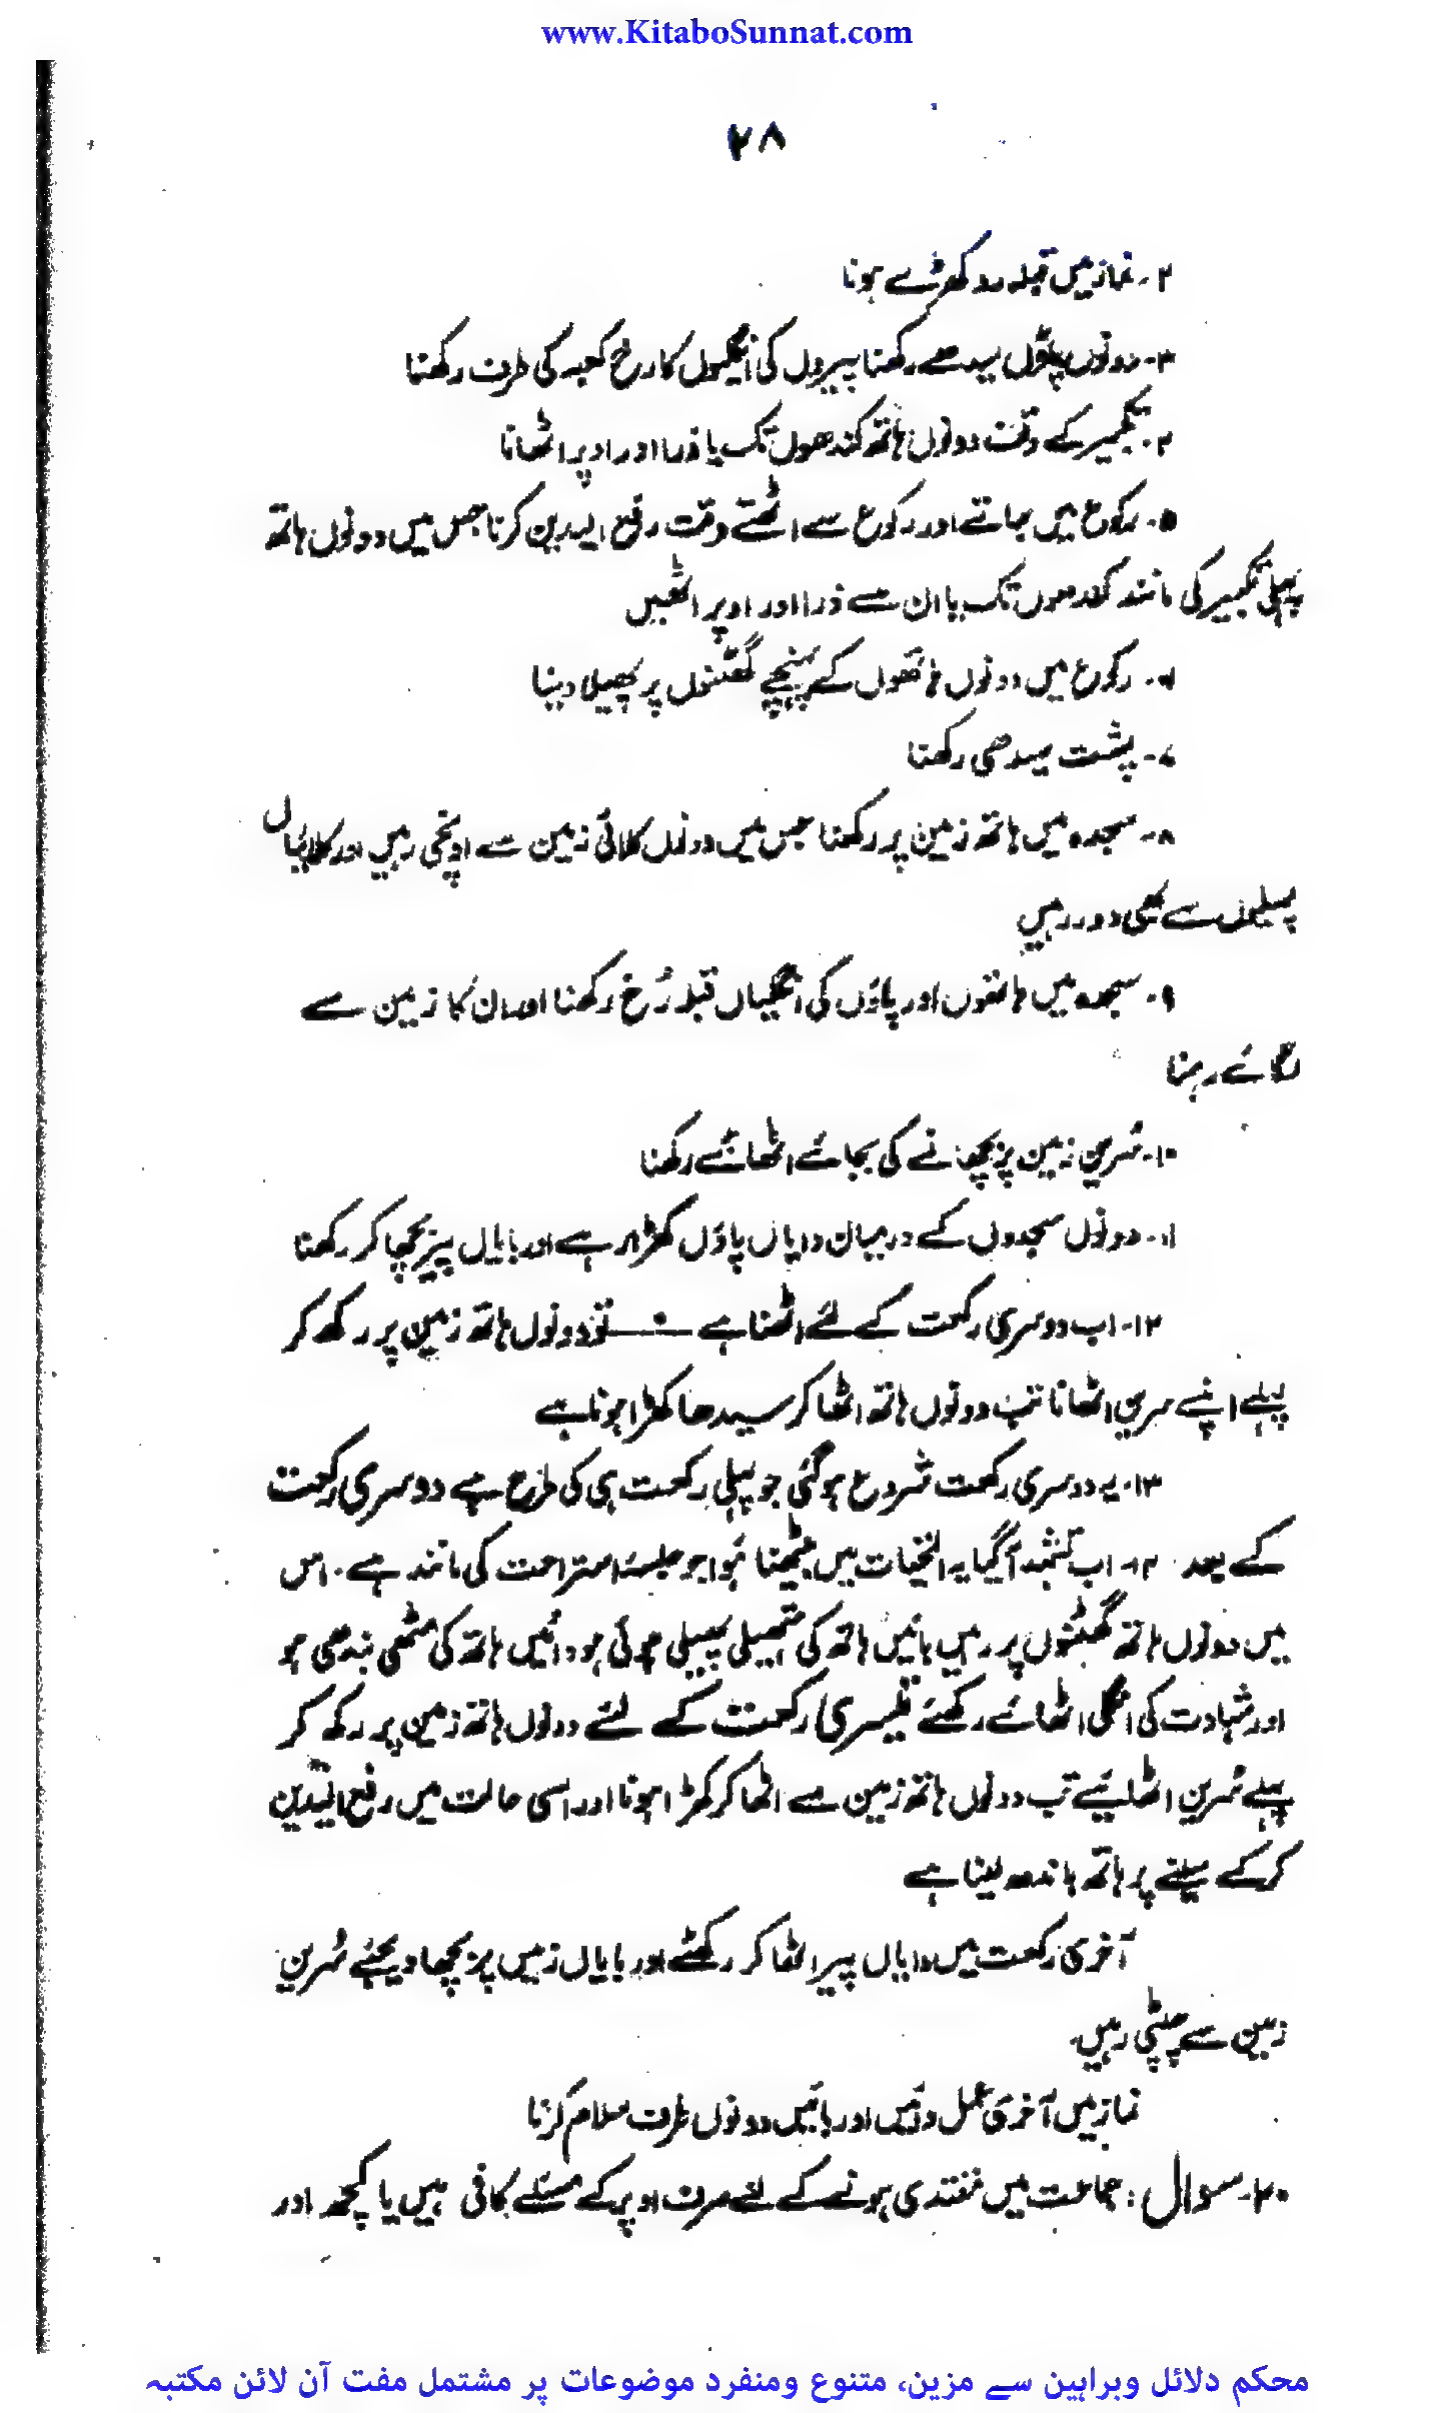 www.KitaboSunnat.com
۲۸
۲۔ نماز میں قبلہ رو کھڑے ہونا
۳۔ دونوں پاؤں سیدھے رکھنا پیروں کی انگلیوں کا رخ کعبہ کی طرف رکھنا
۴۔ تکبیر کے وقت دونوں ہاتھ کندھوں تک یا ذرا اور اوپر اٹھانا
۵۔ رکوع میں جاتے اور رکوع سے اٹھتے وقت رفع الیدین کرنا جس میں دونوں ہاتھ
پہلی تکبیر کی مانند کندھوں تک یا ان سے ذرا اور اوپر اٹھیں
۶۔ رکوع میں دونوں ہاتھوں کے پہنچے گھٹنوں پر پھیلا دینا
۷۔ پشت سیدھی رکھنا
۸۔ سجدہ میں ہاتھ زمین پر رکھنا جس میں دونوں کلائی زمین سے اونچی رہیں اور کلائیاں
پسلیوں سے بھی دور رہیں
۹۔ سجدہ میں ہاتھوں اور پاؤں کی انگلیاں قبلہ رُخ رکھنا اور ان کا زمین سے
لگائے رہنا
۱۰۔ سُرین زمین پر بچھانے کی بجائے اٹھائے رکھنا
۱۱۔ دونوں سجدوں کے درمیان دایاں پاؤں کھڑا رہے اور بایاں پیر بچھا کر رکھنا
۱۲۔ اب دوسری رکعت کے لئے اٹھنا ہے ــــ۰ــــ تو دونوں ہاتھ زمین پر رکھ کر
پہلے اپنے سرین اٹھانا تب دونوں ہاتھ اٹھا کر سیدھا کھڑا ہونا ہے
۱۳۔ یہ دوسری رکعت شروع ہو گئی جو پہلی رکعت ہی کی طرح ہے دوسری رکعت
کے بعد ۱۴۔ اب تشہد آ گیا یہ التحیات میں بیٹھنا ہُوا جو جلسۂ استراحت کی مانند ہے۔ اس
میں دونوں ہاتھ گھٹنوں پر رہیں بائیں ہاتھ کی ہتھیلی پھیلی ہوئی ہو دائیں ہاتھ کی مٹھی بندھی ہو
اور شہادت کی انگلی اٹھائے رکھئے تیسری رکعت کے لئے دونوں ہاتھ زمین پر رکھ کر
پہلے سُرین اٹھائیے تب دونوں ہاتھ زمین سے اٹھا کر کھڑا ہونا اور اسی حالت میں رفع الیدین
کر کے سینے پر ہاتھ باندھ لینا ہے
آخری رکعت میں دایاں پیر اٹھا کر رکھئے اور بایاں زمیں پر بچھا دیجئے سُرین
زمین سے چمٹی رہیں۔
نماز میں آخری عمل دائیں اور بائیں دونوں طرف سلام کرنا
۲۰۔ سوال : جماعت میں مقتدی ہونے کے لئے صرف اوپر کے مسئلے کافی ہیں یا کچھ اور
محکم دلائل وبراہین سے مزین، متنوع ومنفرد موضوعات پر مشتمل مفت آن لائن مکتبہ